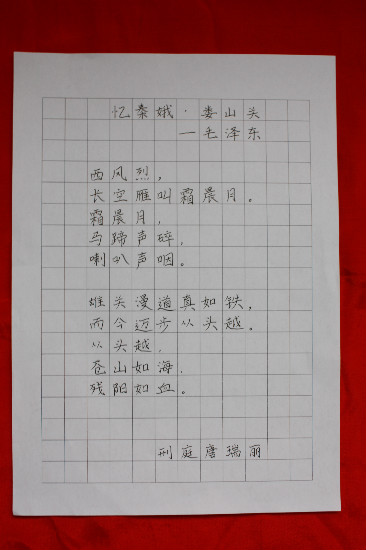 忆秦娥·娄山头
—毛泽东
西风烈，
长空雁叫霜晨月。
霜晨月，
马蹄声碎，
喇叭声咽。
雄头漫道真如铁，
而今迈步从头越。
从头越，
苍山如海，
残阳如血。
刑庭唐瑞丽